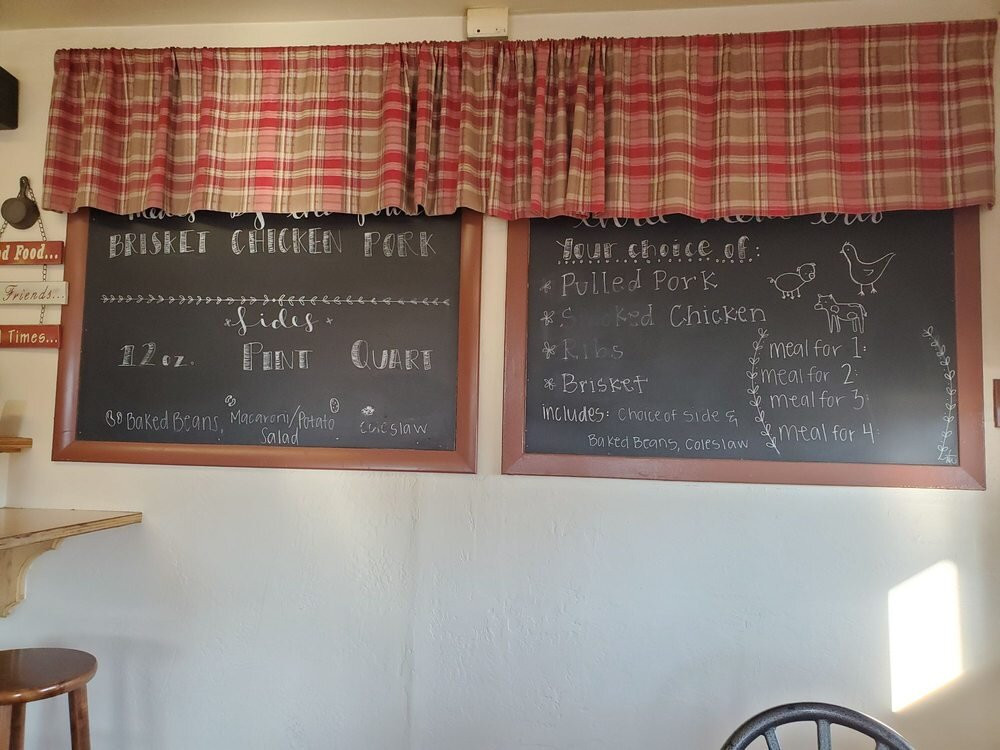 d Food...
Friends...
Times...
meats by the
BRISKET CHICKEN PORK
Sides
12 oz. PINT QUART
Baked Beans, Macaroni/Potato Salad
Coleslaw
Your choice of:
Pulled Pork
Smoked Chicken
Ribs
Brisket
includes: choice of side &
Baked Beans, coleslaw
meal for 1:
meal for 2:
meal for 3:
meal for 4: